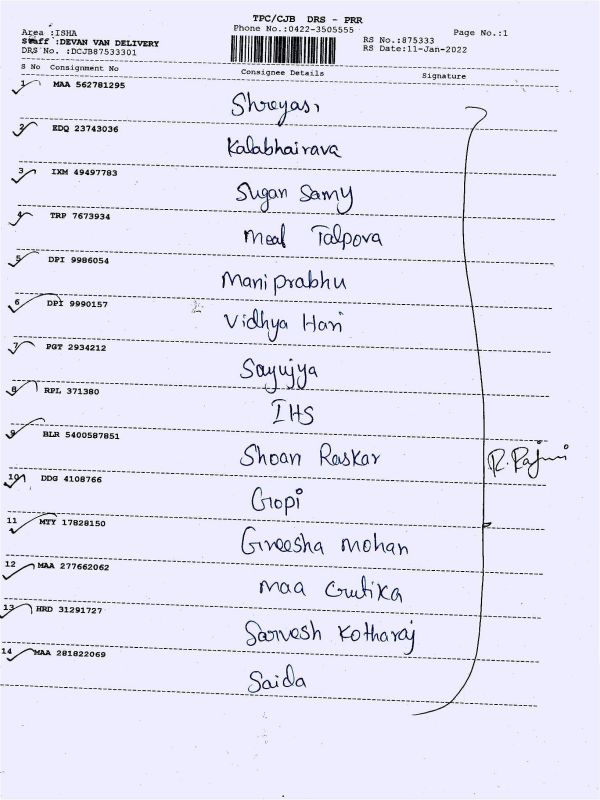 TPC/CJB DRS - PRR
Area :ISHA Phone No.:0422-3505555 Page No.:1
Staff :DEVAN VAN DELIVERY RS No.:875333
DRS No. :DCJB87533301 RS Date:11-Jan-2022
S No Consignment No Consignee Details Signature
1 MAA 562781295
Shreyas
2 EDQ 23743036
Kalabhairava
3 IXM 49497783
Sugan Samy
4 TRP 7673934
Meal Talpova
5 DPI 9986054
Maniprabhu
6 DPI 9990157
Vidhya Hari
7 PGT 2934212
Sayujya
8 RPL 371380
IHS
9 BLR 5400587851
Shoan Raskar
R. Rajini
10 DDG 4108766
Gopi
11 MTY 17828150
Greesha mohan
12 MAA 277662062
maa
13 HRD 31291727
Sarvesh Kotharaj
14 MAA 281822069
Saida